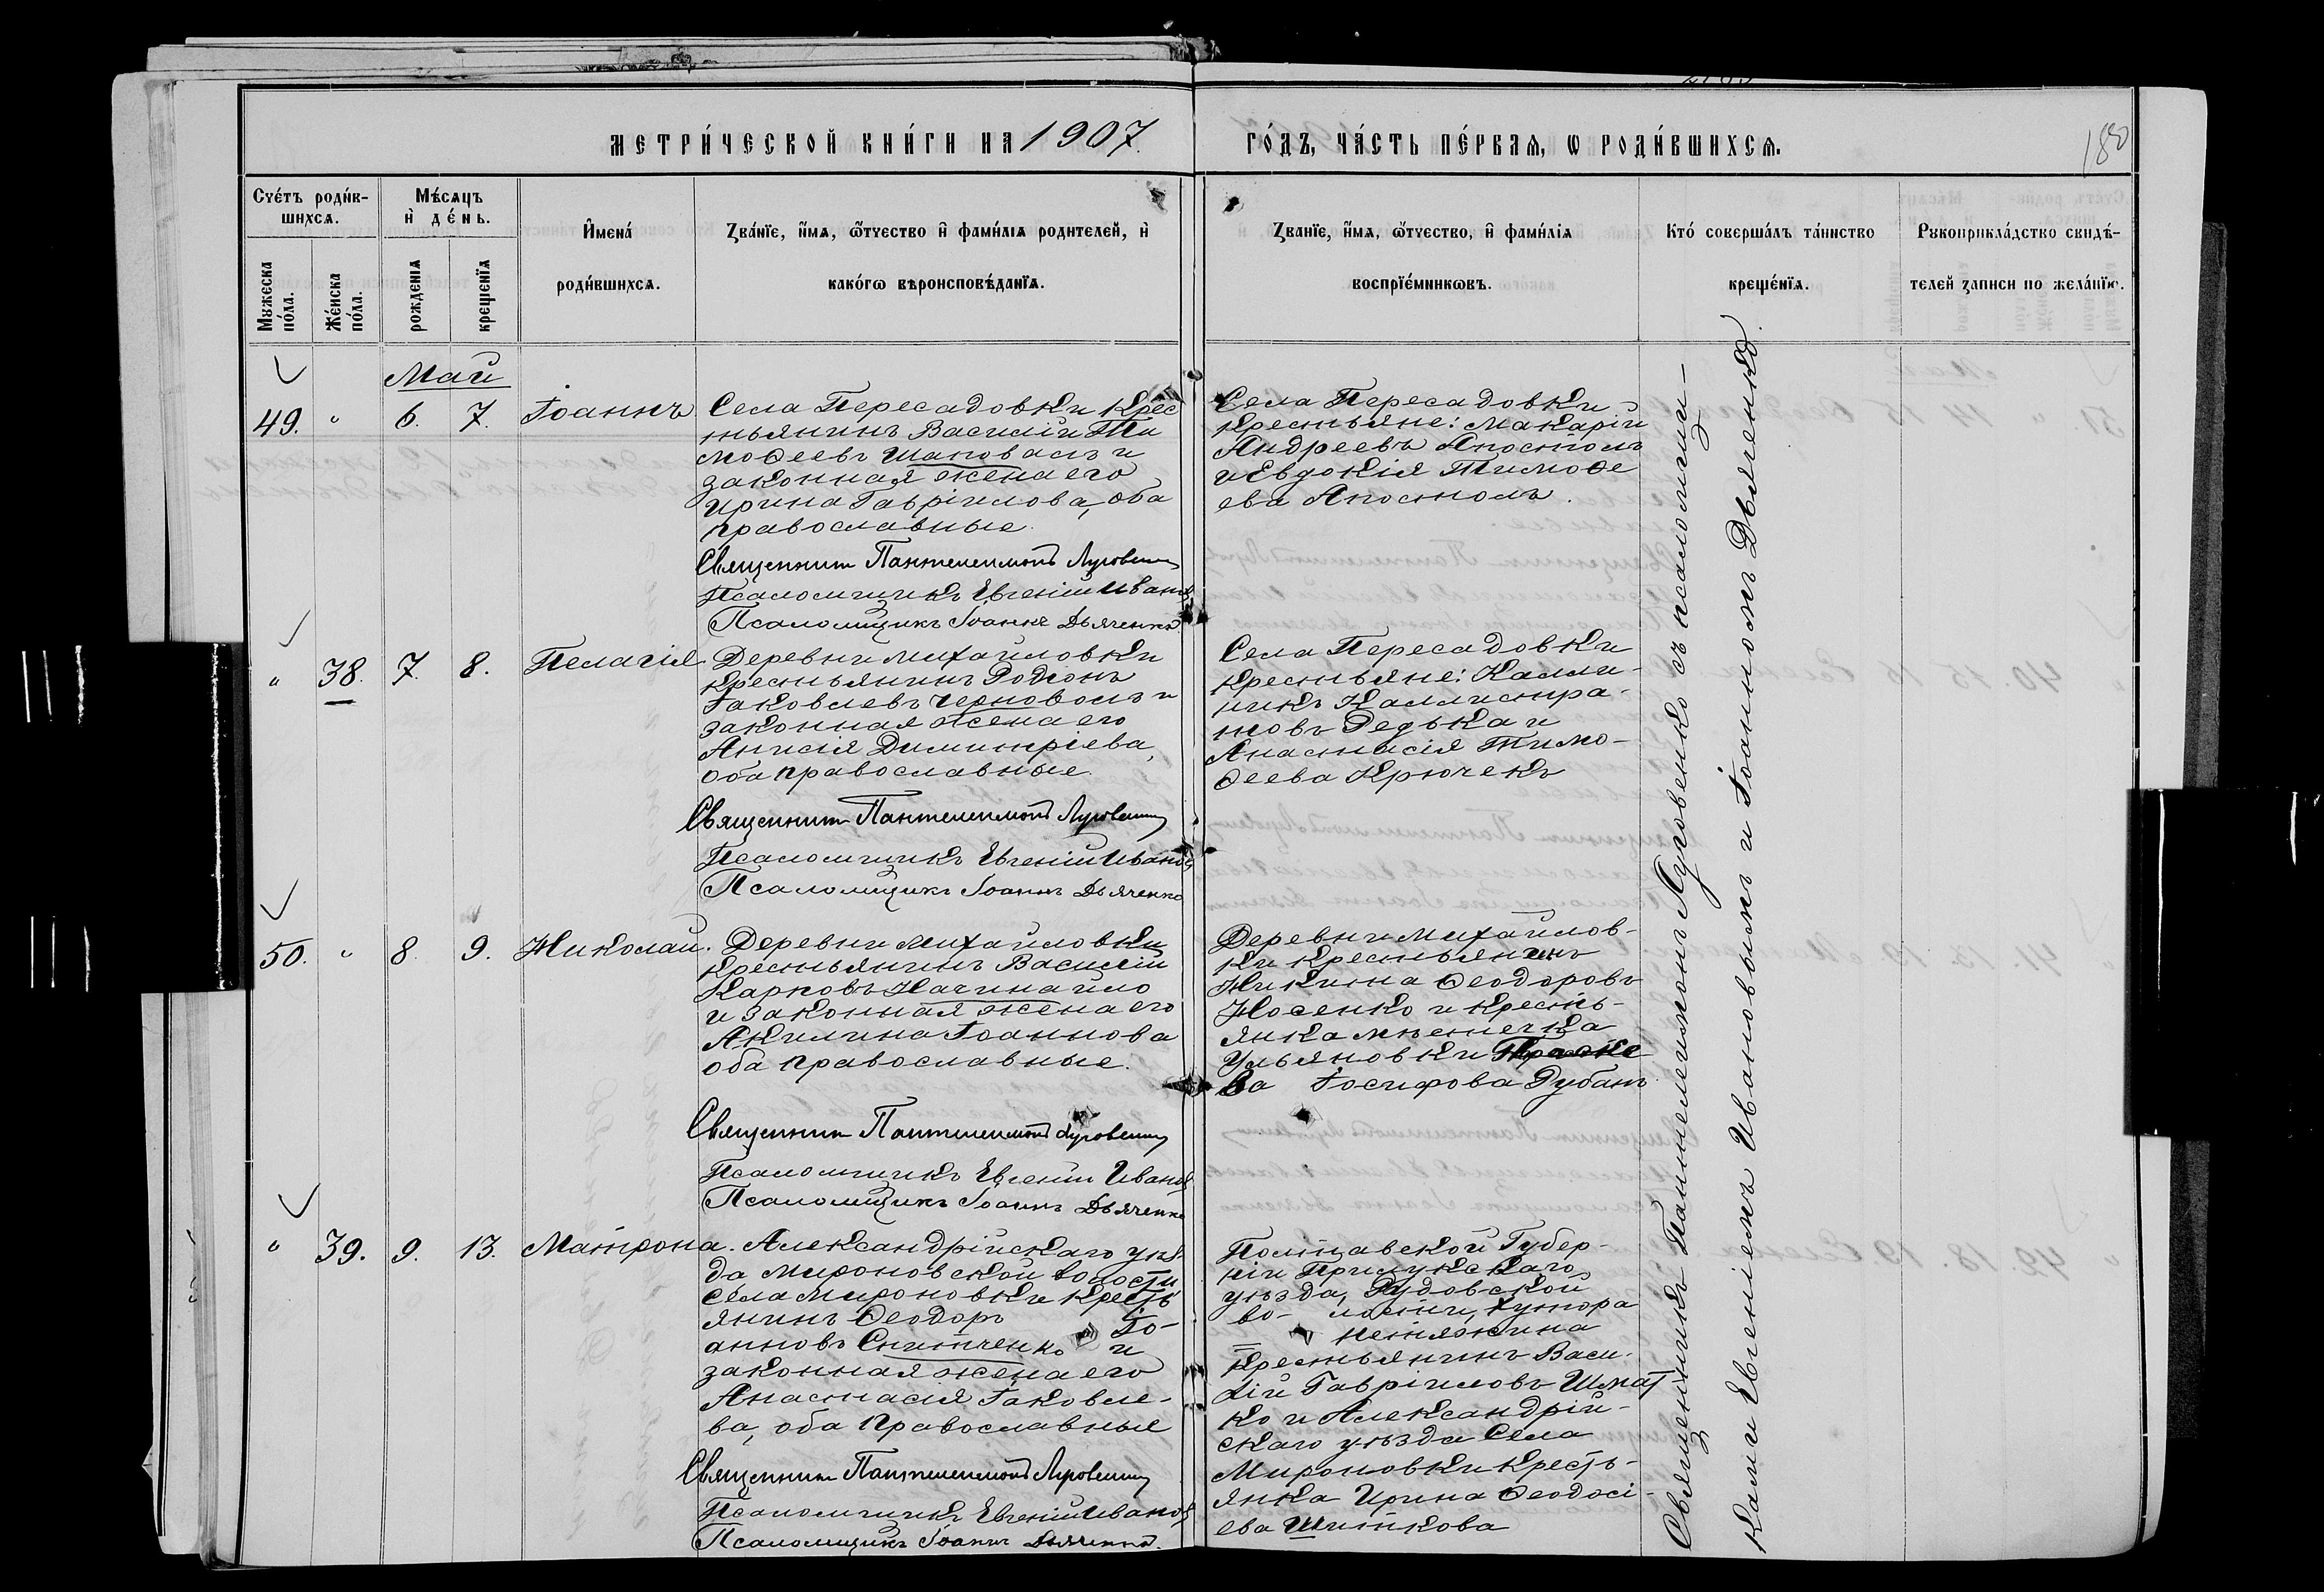 МЕТРИ́ЧЕСКОЙ КНИ́ГИ НА 1907.
ГО́ДЪ, ЧА́СТЬ ПЕ́РВАѦ, Ѡ РОДИ́ВШИХСѦ.
180
Сче́тъ роди́в-
шихсѧ.
Мꙋжеска по́ла.
Же́нска по́ла.
Мѣ́сѧцъ
и҆ де́нь.
рожденїѧ
крещенїѧ
И҆мена́
роди́вшихсѧ.
Зва́нїе, и҆́мѧ, ѻ҆́тчество и҆ фами́лїѧ родителей, и҆
како́гѡ вѣроисповѣ́данїѧ.
Зва́нїе, и҆́мѧ, ѻ҆́тчество, и҆ фами́лїѧ
воспрїе́мникѡвъ.
Кто́ соверша́лъ та́инство
креще́нїѧ.
Рꙋкоприкла́дство свидѣ́-
телей записи по жела́нїю.
Май
49. " 6. 7. Іоаннъ
Села Пересадовки крес
тьянинъ Василій Ти
моѳеевъ Шаповалъ и
законная жена его
Ирина Гавріилова, оба
православные.
Священник Пантелеимонъ Луговенко
Псаломщикъ Евгеній Иванов
Псаломщикъ Іоаннъ Дьяченко
Села Пересадовки
крестьяне: Макарій
Андреевъ Апостолъ
и Евдокія Тимоѳе
ева Апостолъ.
" 38. 7. 8. Пелагія
Деревни Михайловки
крестьянинъ Родіонъ
Іаковлевъ Черноволъ и
законная жена его
Анисія Димитріева,
оба православные.
Священник Пантелеимонъ Луговенко
Псаломщикъ Евгеній Иванов
Псаломщикъ Іоаннъ Дьяченко
Села Пересадовки
крестьяне: Калли-
никъ Каллистра-
товъ Редька и
Анастасія Тимо-
ѳеева Крючекъ
50. " 8. 9. Николай.
Деревни Михайловки
крестьянинъ Василій
Карповъ Начинайло
и законная жена его
Акилина Іоаннова
оба православные.
Священник Пантелеимонъ Луговенко
Псаломщикъ Евгеній Иванов
Псаломщикъ Іоаннъ Дьяченко
Деревни Михайлов-
ки крестьянинъ
Никита Ѳеодоровъ
Носенко и кресть-
янка мѣстечка
Ульяновки
Іосифова Дубанъ
" 39. 9. 13. Матрона.
Александрійскаго уѣз
да Мироновской волости
села Мироновки кресть
янинъ Ѳеодоръ Іо-
анновъ Снитченко и
законная жена его
Анастасія Іаковле-
ва, оба православные
Священник Пантелеимонъ Луговенко
Псаломщикъ Евгеній Иванов
Псаломщикъ Іоаннъ Дьяченко.
Полтавской Губер-
ніи Прилукскаго
уѣзда, Рудовской
во- лости, хутора
крестьянинъ Васи-
лій Гавріиловъ Шмат
ко и Александрій-
скаго уѣзда Села
Мироновки кресть-
янка Ирина Ѳеодосі-
ева Шиткова
Священникъ Пантелеимонъ Луговенко съ псаломщи-
ками Евгеніемъ Ивановымъ и Іоанномъ Дьяченко.